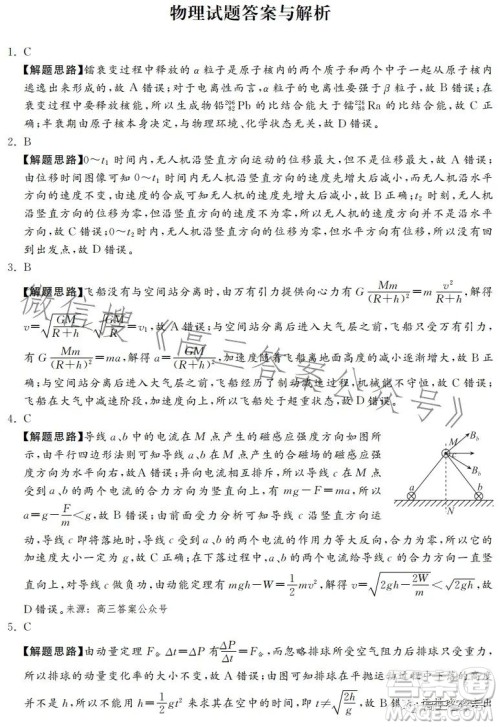 物理试题答案与解析
1. C
【解题思路】镭衰变过程中释放的 α 粒子是原子核内的两个质子和两个中子一起从原子核内
逃逸出来形成的，故 A 错误；对于电离性而言，α 粒子的电离性要强于 β 粒子，故 B 错误；在
衰变过程中要释放核能，所以生成物铅²⁰⁶₈₂Pb 的比结合能大于镭²²⁶₈₈Ra 的比结合能，故 C 正
确；半衰期由原子核本身决定，与物理环境、化学状态无关，故 D 错误。
2. B
【解题思路】0～t₁ 时间内，无人机沿竖直方向运动的位移最大，但不是位移最大，故 A 错误；
由位移时间图像可知 0～t₁ 时间内无人机沿竖直方向的速度先增大后减小，而无人机沿水平
方向的速度不变，由速度的合成可知无人机的速度先增大后减小，故 B 正确；t₂ 时刻，无人机
沿竖直方向的位移为零，但沿竖直方向的速度不为零，所以无人机的速度方向并不是沿水平
方向，故 C 错误；t₂ 时刻，无人机沿竖直方向的位移为零，但水平方向有位移，所以没有回
到出发点，故 D 错误。
3. B
【解题思路】飞船没有与空间站分离时，由万有引力提供向心力有 G Mm/(R+h)² = m v²/(R+h)，解得
v=√(GM/(R+h))<√(GM/R)=v₁，故 A 错误；与空间站分离后进入大气层之前，飞船只受万有引力，
有 G Mm/(R+h)² =ma，解得 a=GM/(R+h)²，加速度随着飞船离地面高度的减小逐渐增大，故 B 正
确；与空间站分离后进入大气层之前，飞船经历了制动减速过程，机械能不守恒，故 C 错误；
飞船在大气中减速阶段，加速度向上，所以飞船处于超重状态，故 D 错误。
4. C
【解题思路】导线 a、b 中的电流在 M 点产生的磁感应强度方向如图所
示，由平行四边形法则可知导线 a、b 的电流在 M 点的合磁场的磁感应强
度方向为水平向右，故 A 错误；异向电流相互排斥，所以导线 c 在 M 点
受到 a、b 的两个电流的合力方向为竖直向上，有 mg－F＝ma，所以
a=g－F/m<g，故 B 错误；由前面受力分析可知导线 c 沿竖直方向运
动，导线 c 即将落地时，导线 c 受到 a、b 两个电流的作用力等大反向，合力为零，所以加速
度大小一定为 g，故 C 正确；在下落过程中，a、b 两个电流给导线 c 的安培力的合力方向一直
竖直向上，对导线 c 做负功，由动能定理有 mgh－W=½mv²，解得 v=√(2gh－2W/m)<√(2gh)，故
D 错误。来源：高三答案公众号
5. C
【解题思路】由动量定理 F合Δt=ΔP 有 F合=ΔP/Δt，而忽略排球所受空气阻力后排球只受重力，
所以排球的动量变化率的大小不变，故 A 错误；由图可知排球在平抛运动过程中下落的高度
并不是 h，所以根据 h=½gt² 来求得的时间并不是排球运动的时间，即 t≠√(2h/g)，故 B 错误；
微信搜《高三答案公众号》